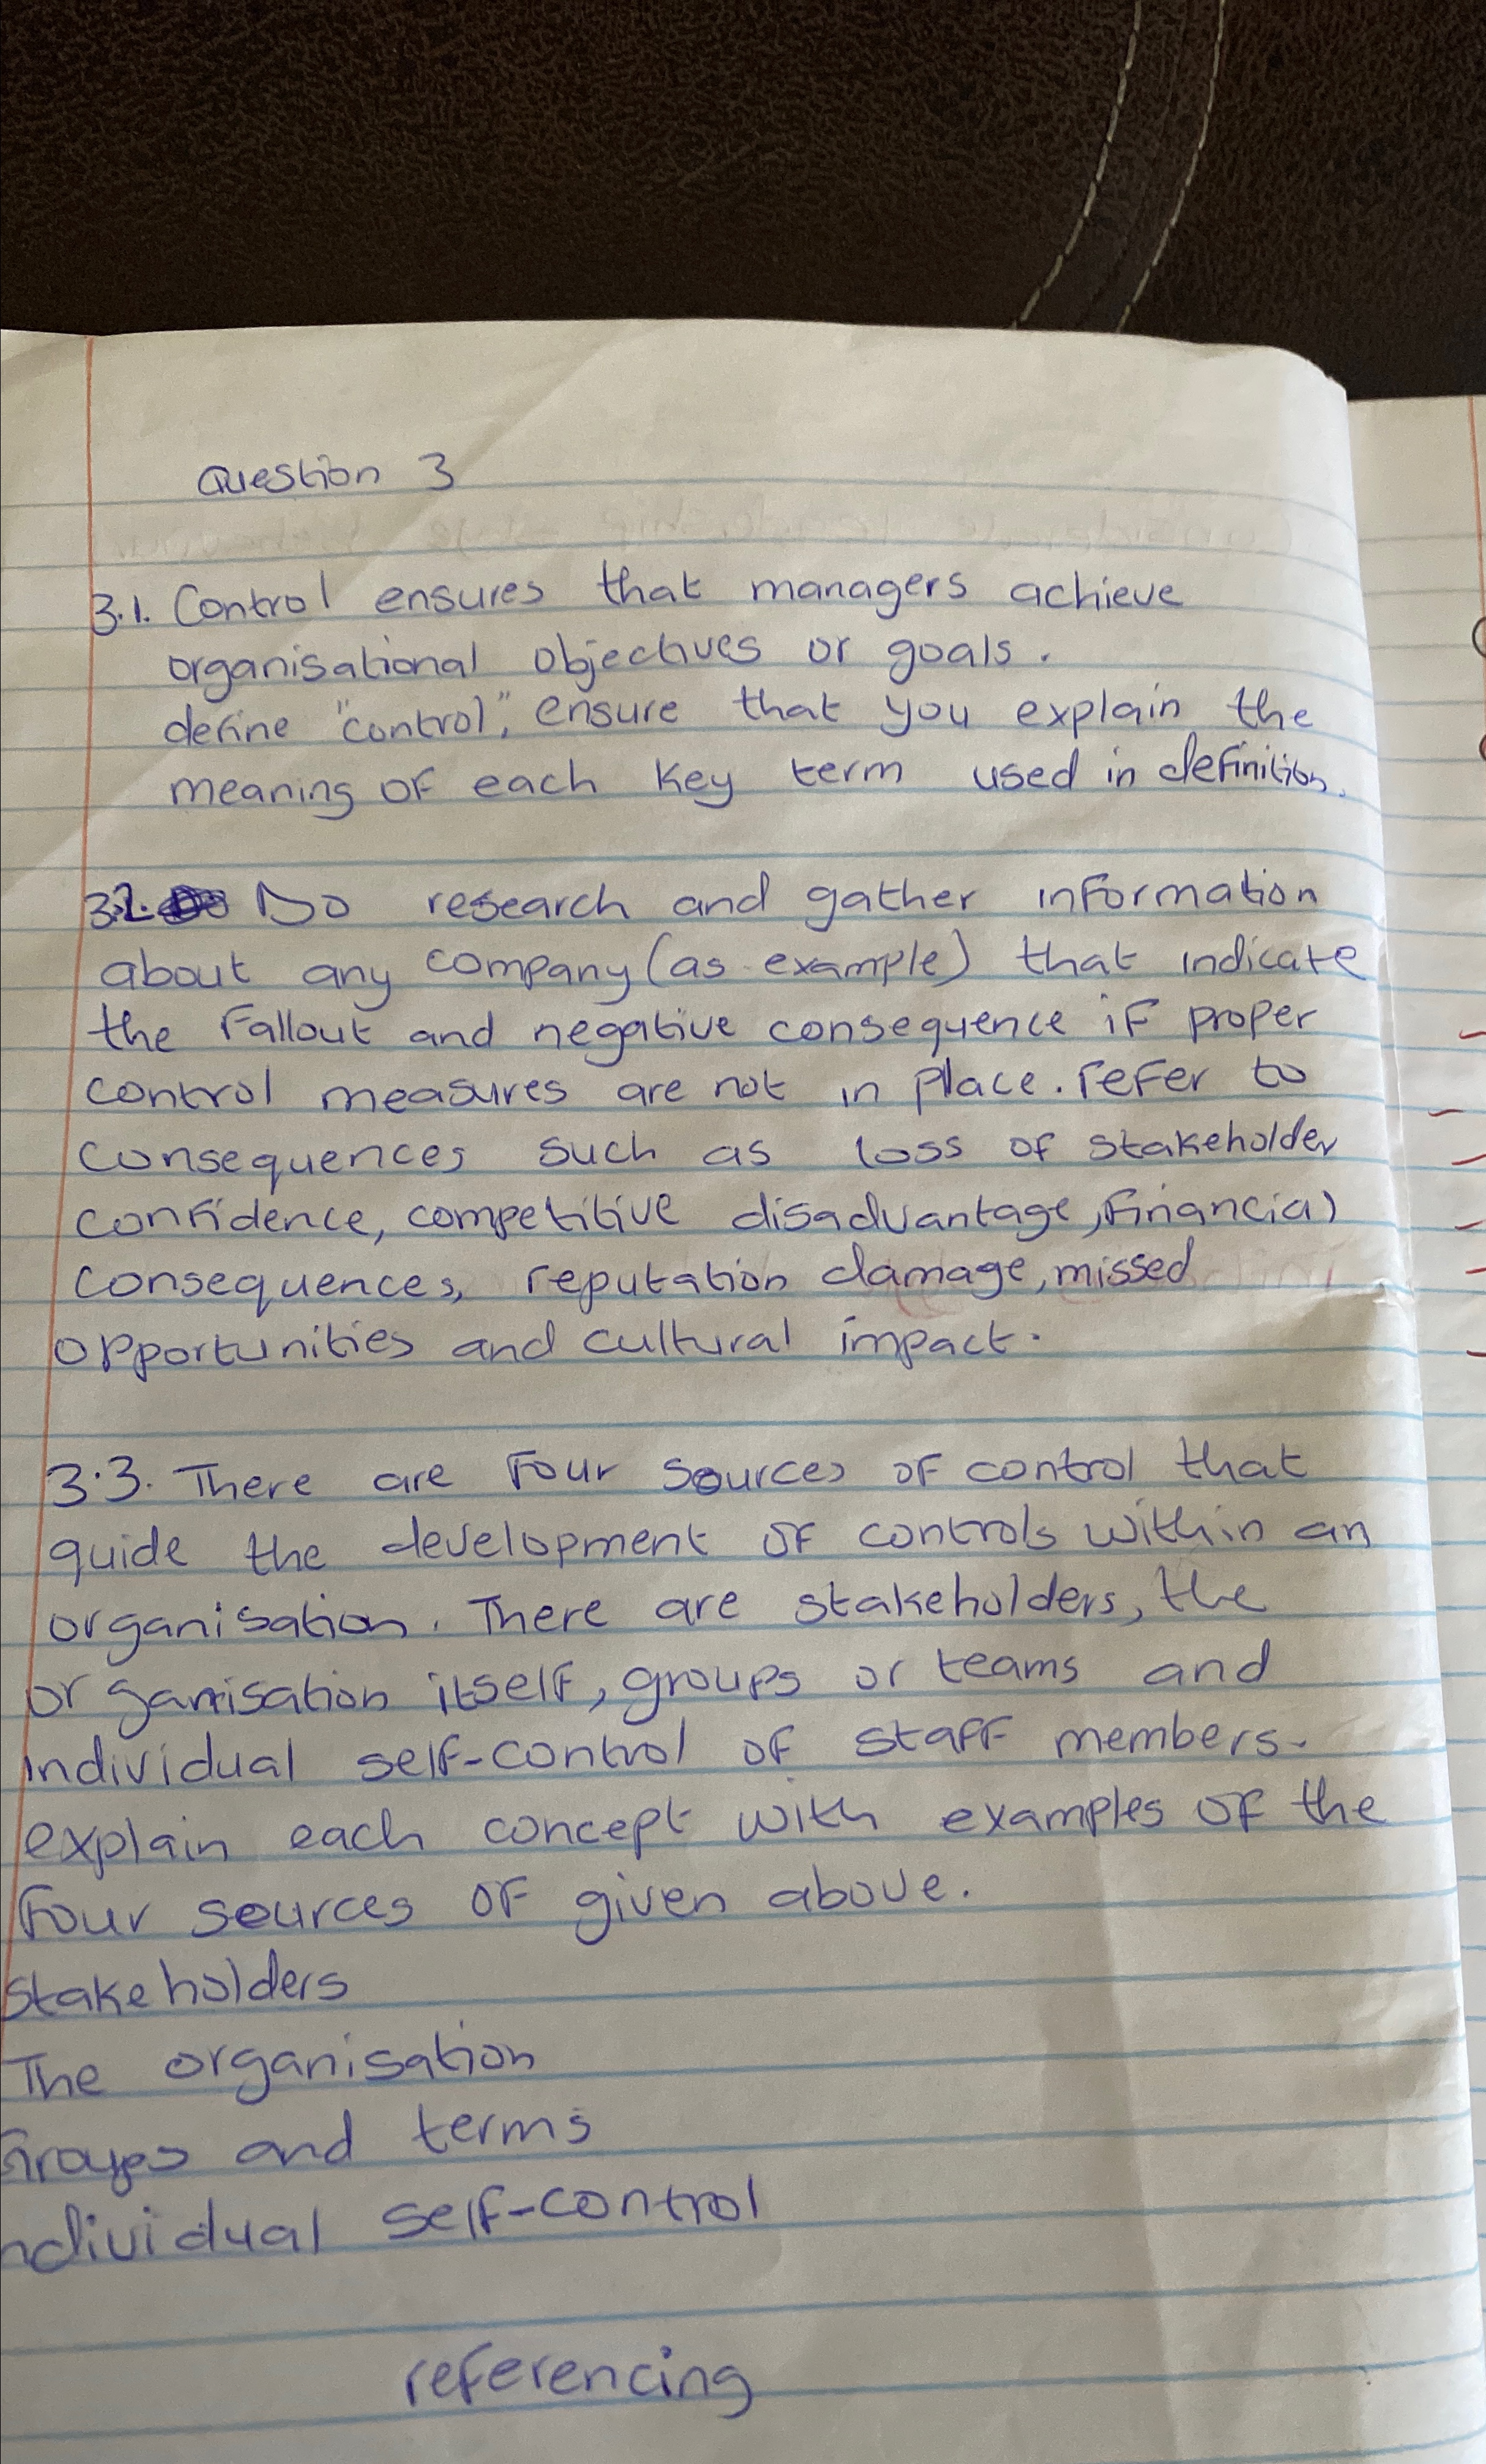 Question 3
3.1. Control ensures that managers achieve
organisational objectives or goals.
define "control", ensure that you explain the
meaning of each key term used in definition.
3.2. Do research and gather information
about any company (as example) that indicate
the fallout and negative consequence if proper
control measures are not in place. refer to
consequences such as loss of stakeholder
confidence, competitive disadvantage, financial
consequences, reputation damage, missed
opportunities and cultural impact.
3.3. There are four sources of control that
guide the development of controls within an
organisation. There are stakeholders, the
organisation itself, groups or teams and
individual self-control of staff members.
explain each concept with examples of the
four sources of given above.
Stakeholders
The organisation
Groups and terms
ndividual self-control
referencing